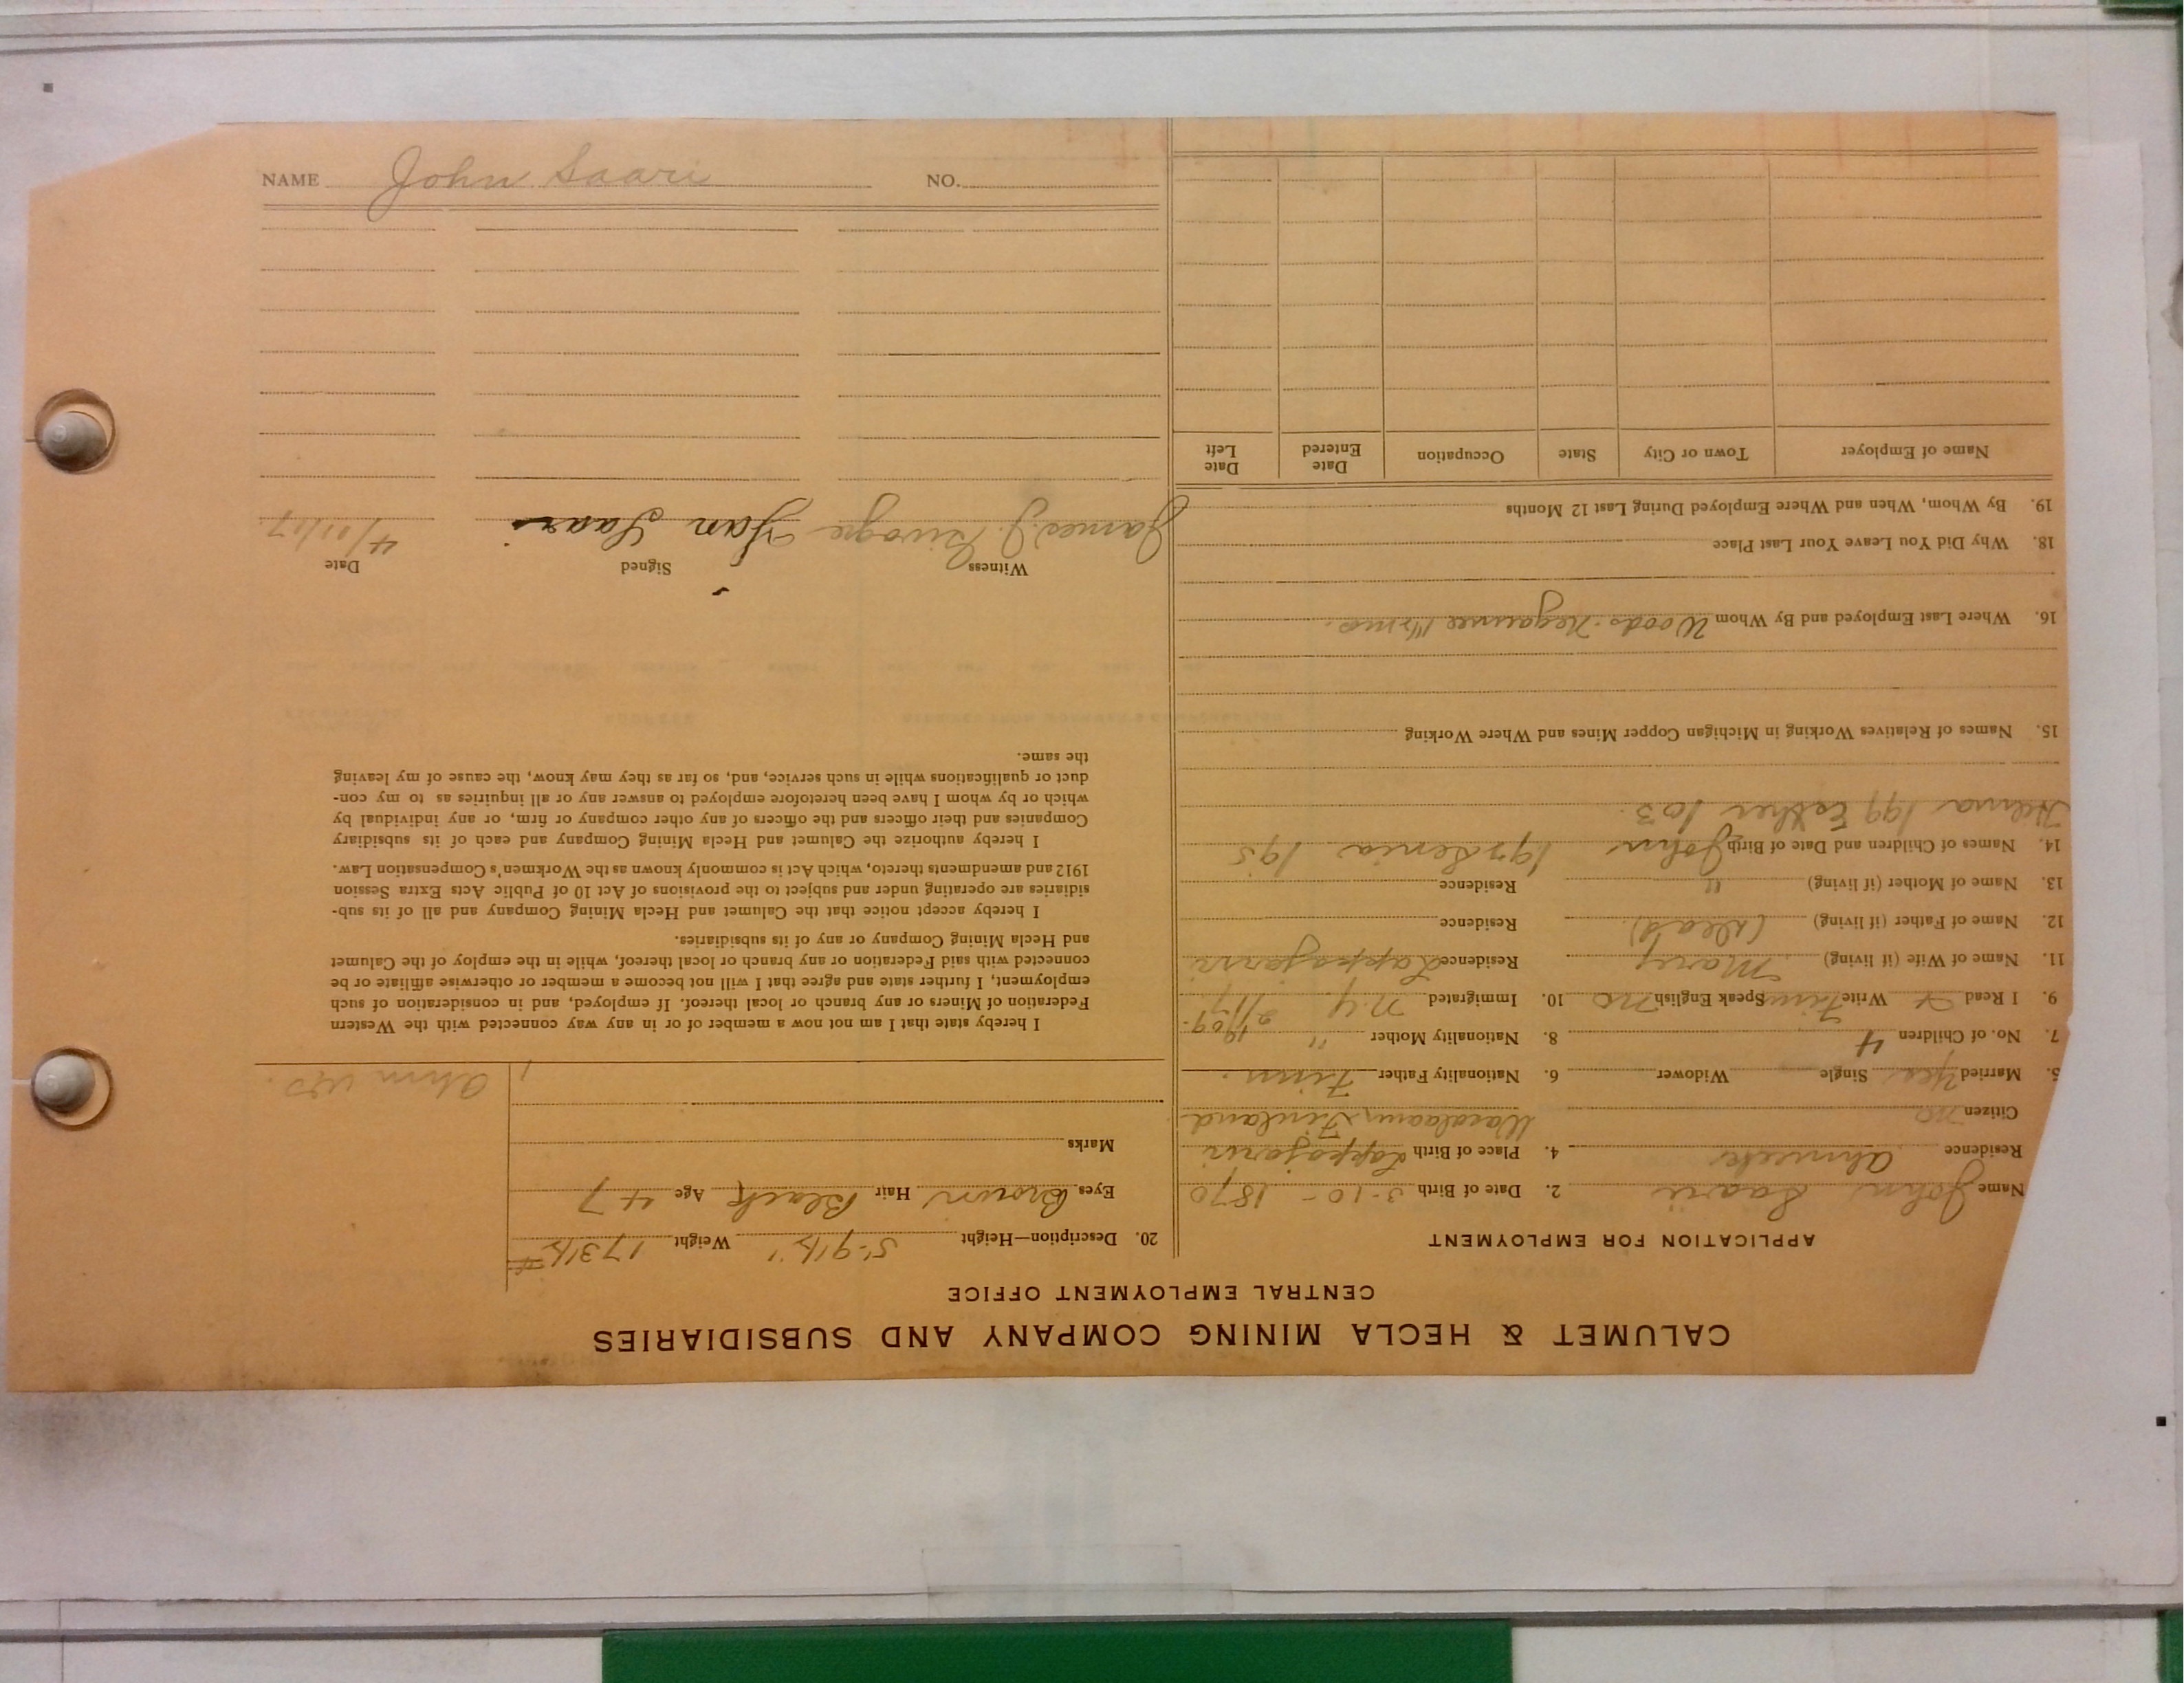 CALUMET & HECLA MINING COMPANY AND SUBSIDIARIES
CENTRAL EMPLOYMENT OFFICE
APPLICATION FOR EMPLOYMENT
Name John Saari 2. Date of Birth 3-10-1870
Residence Ahmeek 4. Place of Birth Lappajarvi
Citizen no Finland
5. Married Yes Single Widower 6. Nationality Father Finn.
7. No. of Children 4 8. Nationality Mother " 1909.
9. I Read Write Finn Speak English no 10. Immigrated N.Y. 2/17
11. Name of Wife (if living) Mary Residence Lappajarvi
12. Name of Father (if living) (Dead) Residence
13. Name of Mother (if living) " Residence
14. Names of Children and Date of Birth John 197 Senia 195
199 Esther 103.
15. Names of Relatives Working in Michigan Copper Mines and Where Working
16. Where Last Employed and By Whom Woods-Negaunee 1½ mo.
18. Why Did You Leave Your Last Place
19. By Whom, When and Where Employed During Last 12 Months
Name of Employer Town or City State Occupation Date Entered Date Left
20. Description—Height 5'-9½" Weight 173½#
Eyes Brown Hair Black Age 47
Marks
I hereby state that I am not now a member of or in any way connected with the Western
Federation of Miners or any branch or local thereof. If employed, and in consideration of such
employment, I further state and agree that I will not become a member or otherwise affiliate or be
connected with said Federation or any branch or local thereof, while in the employ of the Calumet
and Hecla Mining Company or any of its subsidiaries.
I hereby accept notice that the Calumet and Hecla Mining Company and all of its sub-
sidiaries are operating under and subject to the provisions of Act 10 of Public Acts Extra Session
1912 and amendments thereto, which Act is commonly known as the Workmen's Compensation Law.
I hereby authorize the Calumet and Hecla Mining Company and each of its subsidiary
Companies and their officers and the officers of any other company or firm, or any individual by
which or by whom I have been heretofore employed to answer any or all inquiries as to my con-
duct or qualifications while in such service, and, so far as they may know, the cause of my leaving
the same.
Witness Signed Date
James J. Jan Saari
NAME John Saari NO.